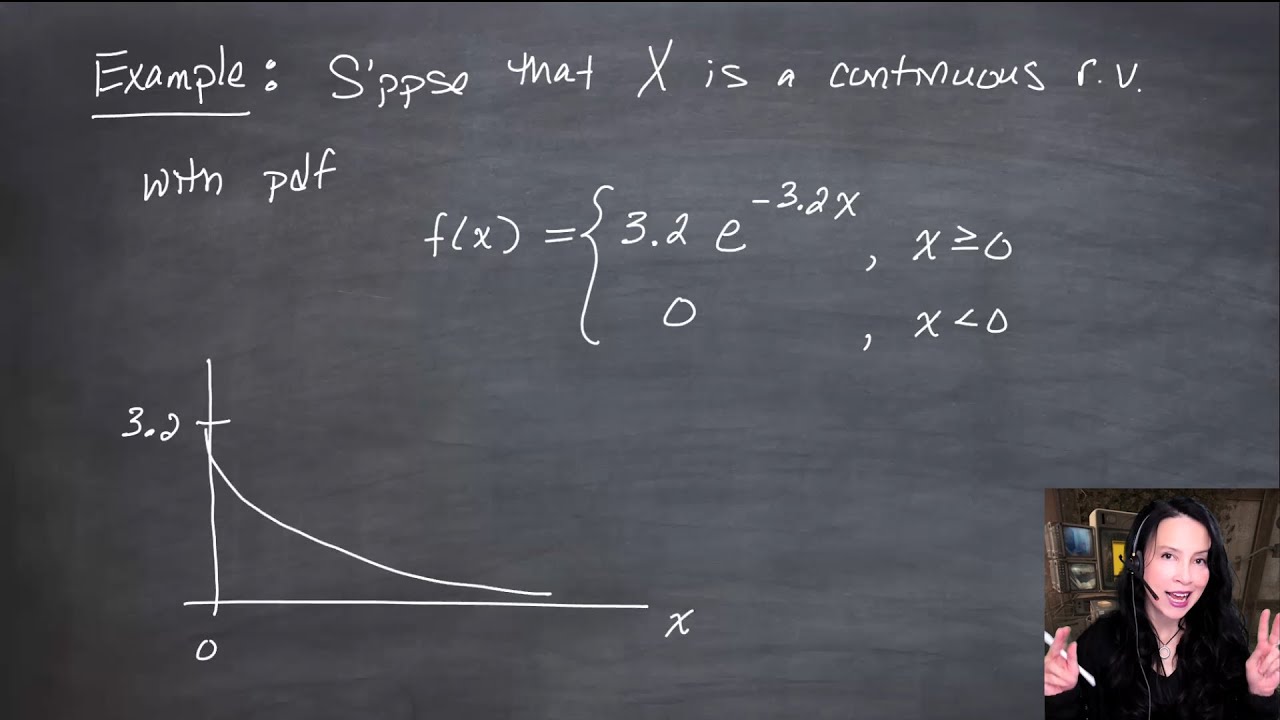 Example: S'ppse that X is a continuous r.v.
with pdf
f(x) = { 3.2 e^{-3.2x} , x ≥ 0
0 , x < 0
3.2
0
x